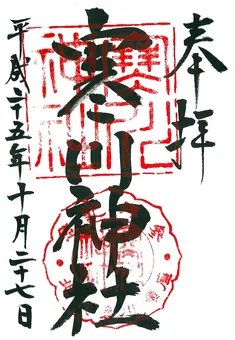 奉拝
寒川神社
平成二十五年十月二十七日